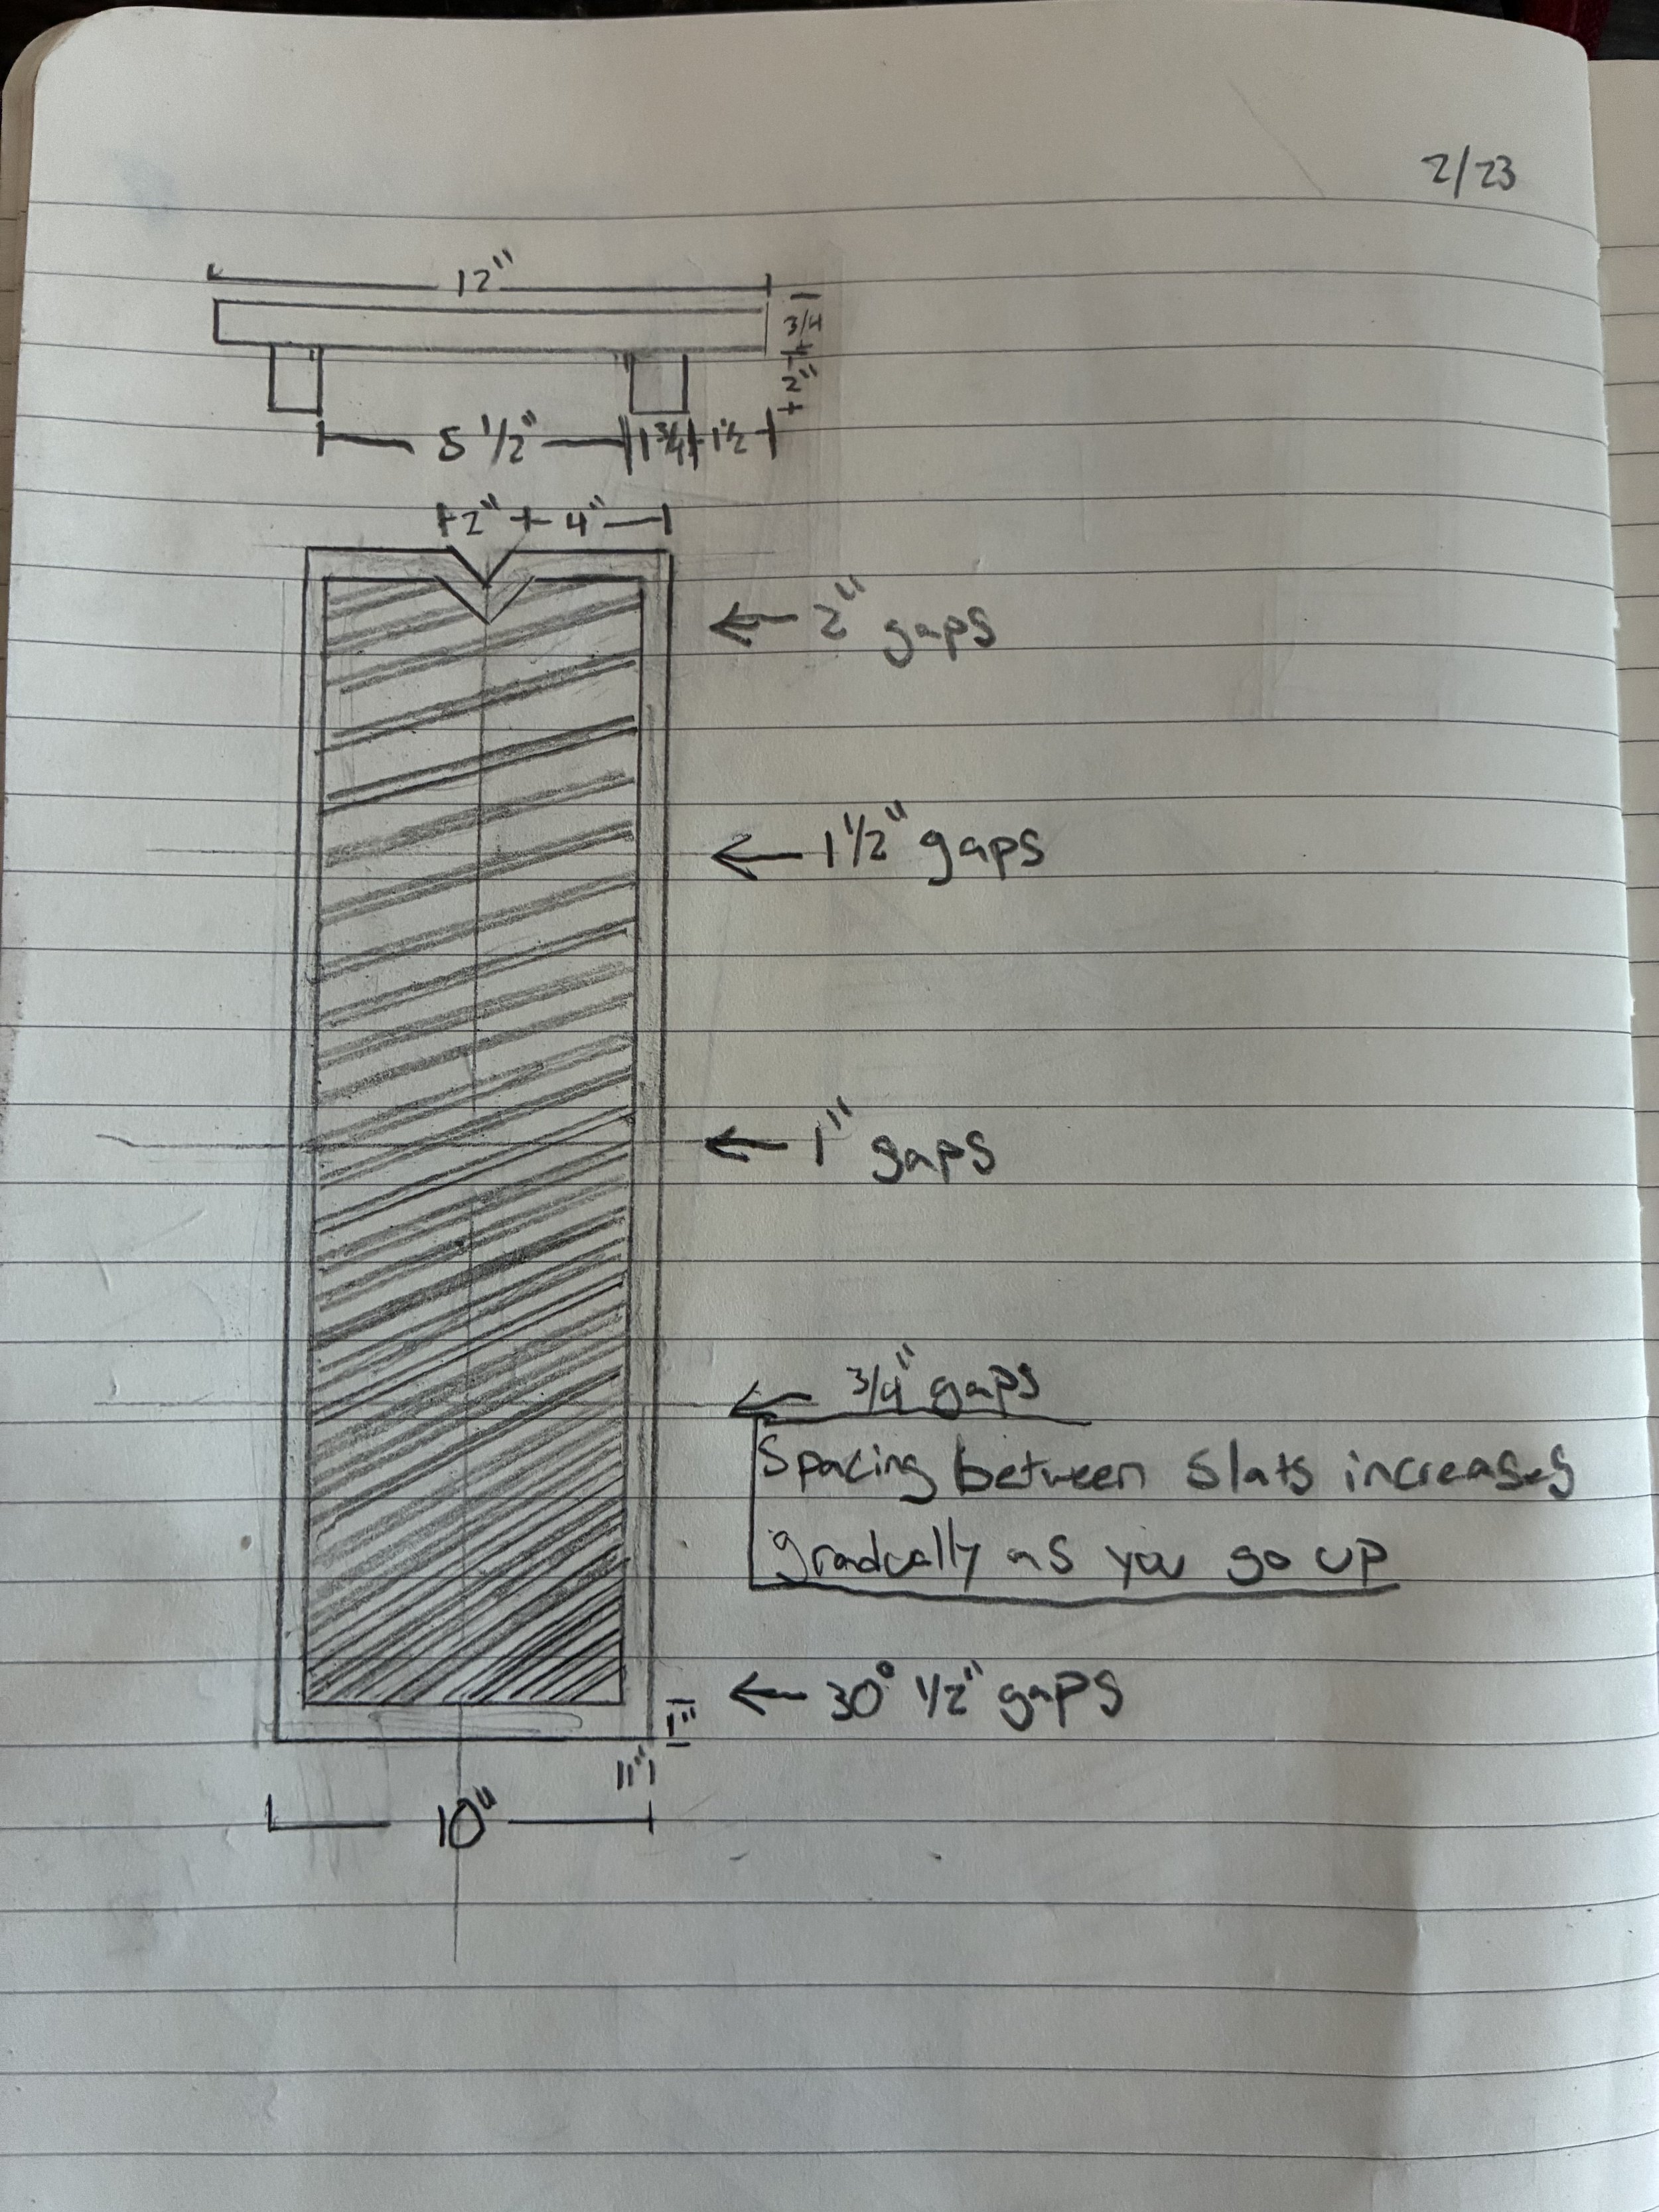 2/23
12"
3/4
2"
5 1/2" 1 3/4 1 1/2
2" 4"
2" gaps
1 1/2" gaps
1" gaps
3/4" gaps
Spacing between slats increases
gradually as you go up
30° 1/2" gaps
1"
1"
10"